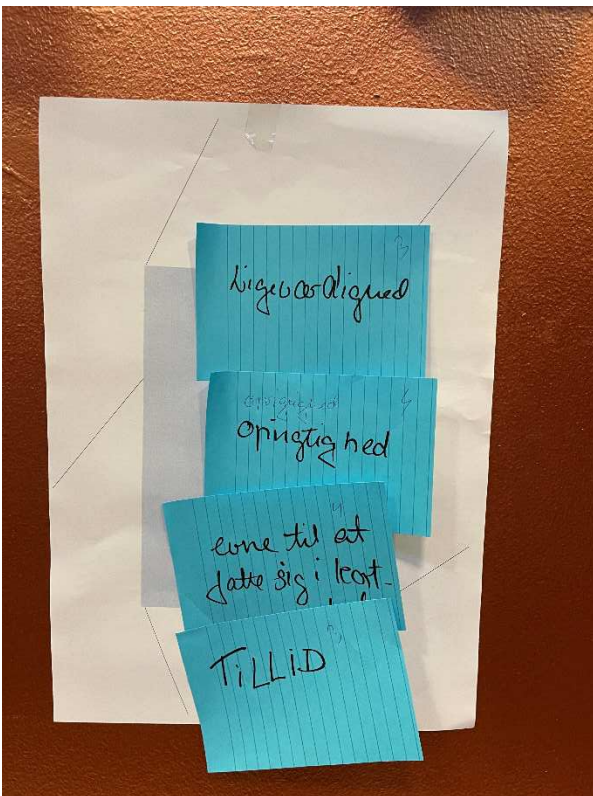 3
Ligeværdighed
4
oprigtighed
4
evne til at
fatte sig i kort-
TiLLiD